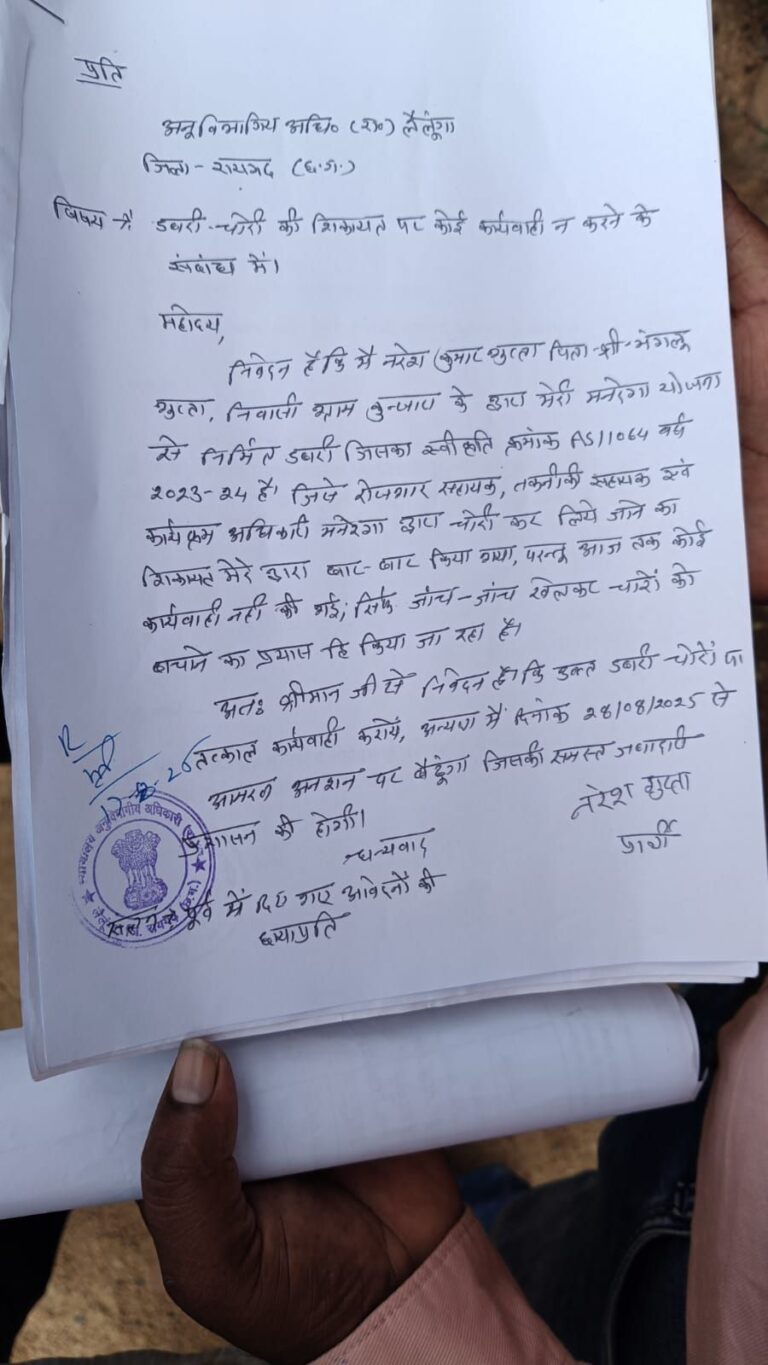 प्रति
अनुविभागिय अधि० (रा०) लैलूंगा
जिला- रायगढ (छ.ग.)
विषय :- डबरी-चोरी की शिकायत पर कोई कार्यवाही न करने के
संबंध में।
महोदय,
निवेदन है कि मैं नरेश कुमार गुप्ता पिता श्री मंगलू
गुप्ता, निवासी ग्राम कुन्जारा के द्वारा मेरी मनरेगा योजना
से निर्मित डबरी जिसका स्वीकृति क्रमांक AS/1064 वर्ष
2023-24 है। जिसे रोजगार सहायक, तकनीकी सहायक एवं
कार्यक्रम अधिकारी मनरेगा द्वारा चोरी कर लिये जाने का
शिकायत मेरे द्वारा बार-बार किया गया, परन्तु आज तक कोई
कार्यवाही नही की गई; सिर्फ जांच-जांच खेलकर चोरों को
बचाने का प्रयास हि किया जा रहा है।
अतः श्रीमान जी से निवेदन है। कि उक्त डबरी चोरों पर
तत्काल कार्यवाही करायें, अन्यथा मैं दिनांक 28/08/2025 से
आमरण अनशन पर बैठूंगा जिसकी समस्त जवाबदारी
प्रशासन की होगी।
धन्यवाद
नरेश गुप्ता
प्रार्थी
न्यायालय अनुविभागीय अधिकारी
पूर्व में दिए गए आवेदनों की
छायाप्रति